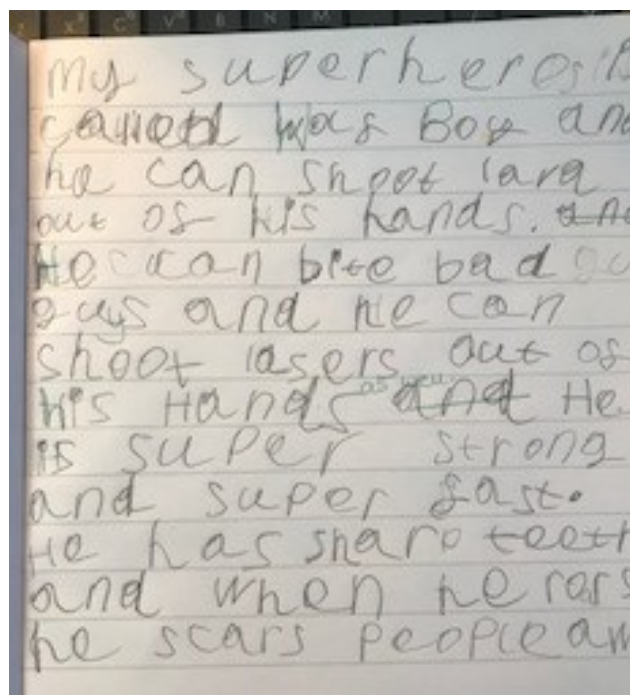 My superhero is
called Boy and
he can shoot lara
out of his hands. and
He can bite bad
guys and he can
shoot lasers out of
his Hands and He
is super strong
and super fast.
He has sharp teeth
and when he rars
he scars people aw